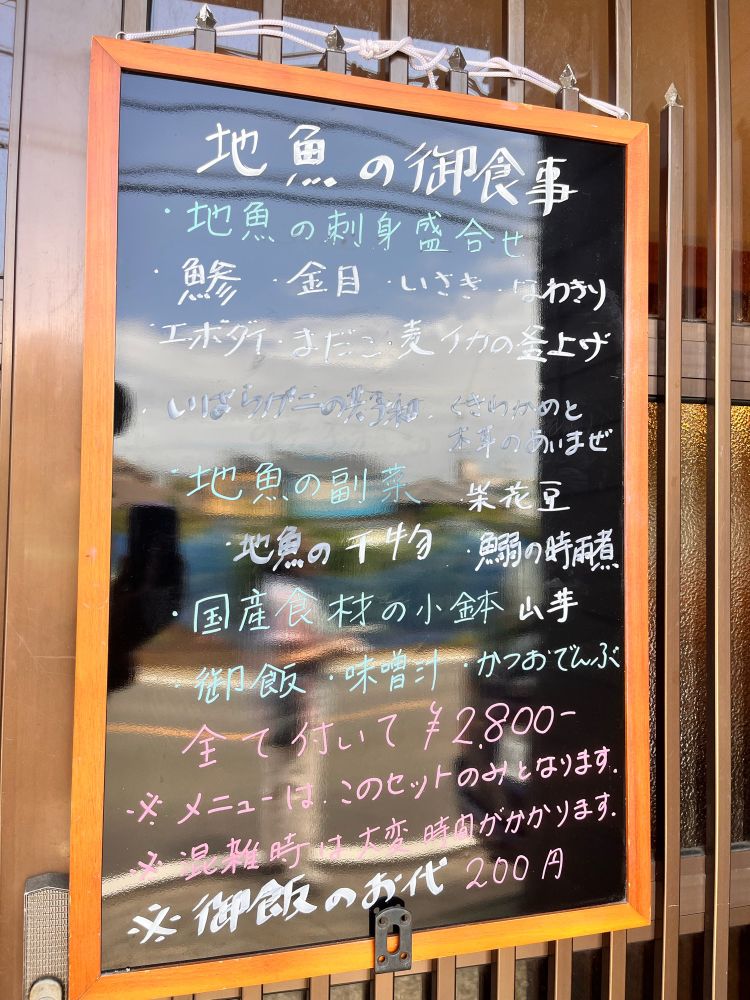 地魚の御食事
・地魚の刺身盛合せ
・鯵・金目・いさき・なわきり
・エボダイ・まだこ・麦イカの釜上げ
・いばらげニの共和・くきわかめと
木耳のあいまぜ
・地魚の副菜・栄花豆
・地魚の干物・鰯の時雨煮
・国産食材の小鉢 山芋
・御飯・味噌汁・かつおでんぶ
全て付いて ¥2,800-
※メニューは、このセットのみとなります。
※混雑時は大変時間がかかります。
※御飯のお代 200円